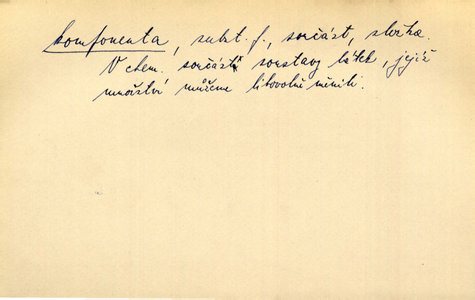 komponenta, subst. f., součást, složka.
V chem. součásti soustavy látek, jejíž
množství můžeme libovolně měniti.